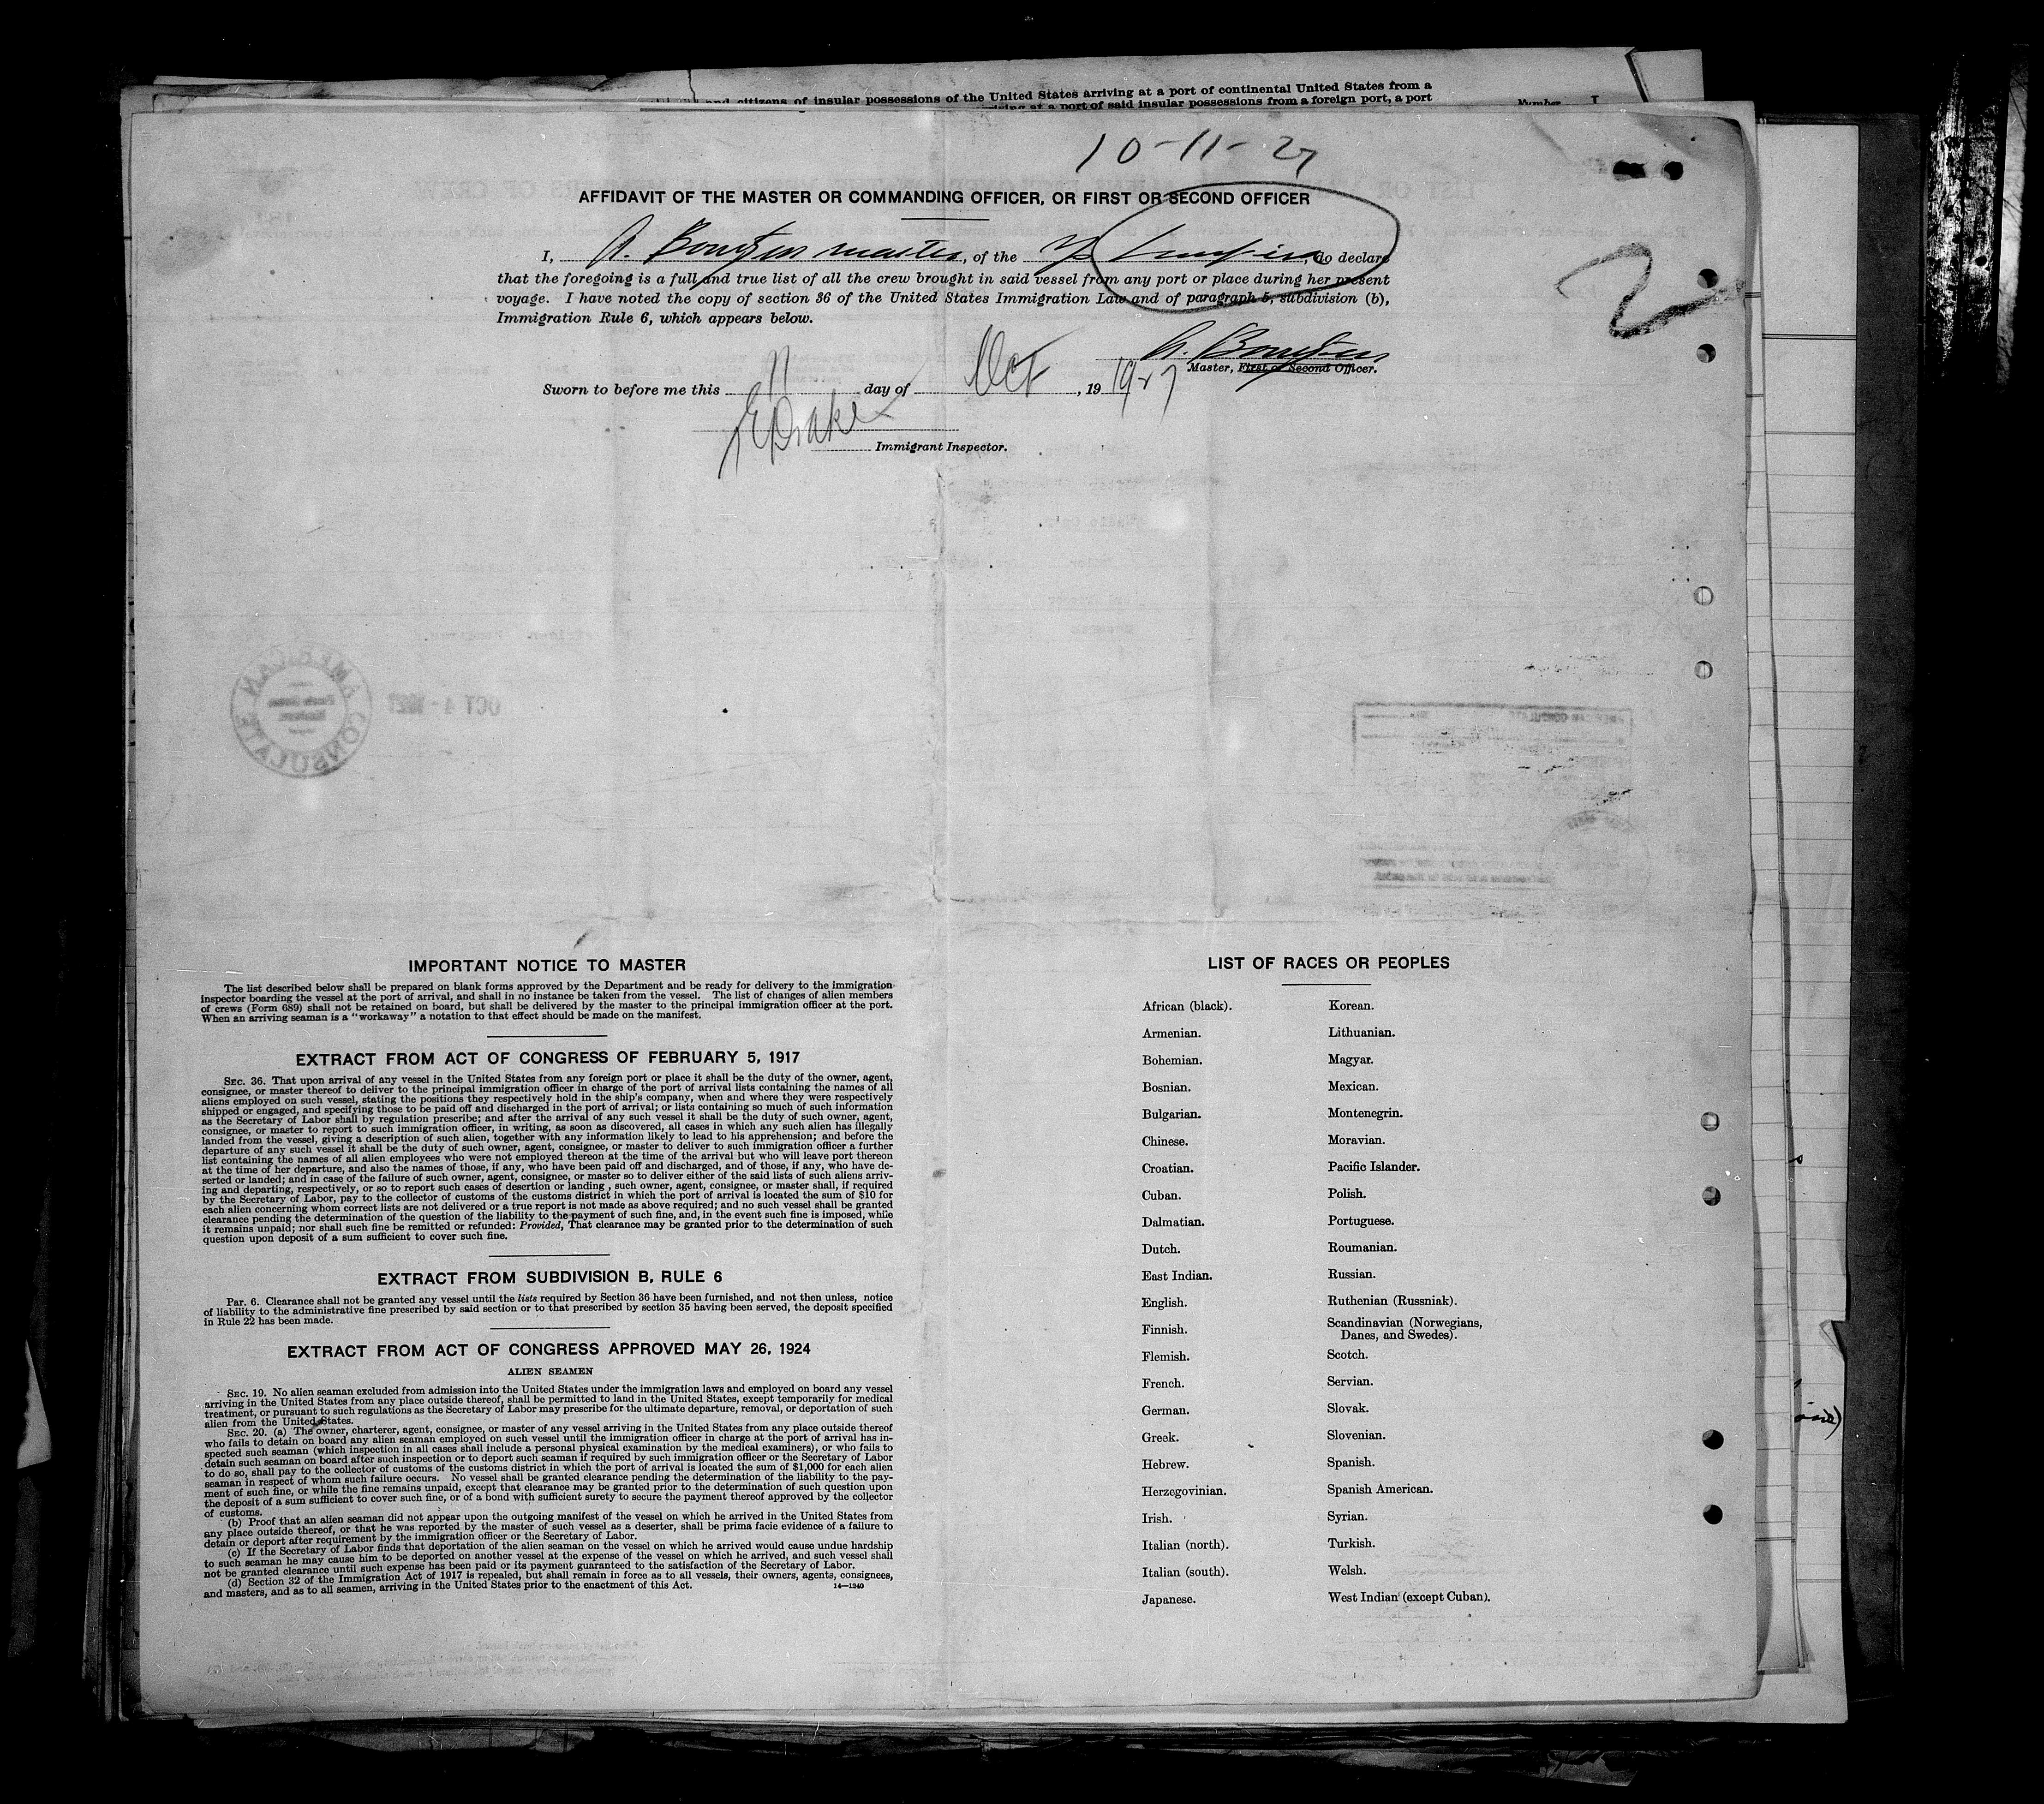 and citizens of insular possessions of the United States arriving at a port of continental United States from a
at a port of said insular possessions from a foreign port, a port
Number
10-11-27
AFFIDAVIT OF THE MASTER OR COMMANDING OFFICER, OR FIRST OR SECOND OFFICER
2
I, master, of the , do declare
that the foregoing is a full and true list of all the crew brought in said vessel from any port or place during her present
voyage. I have noted the copy of section 36 of the United States Immigration Law and of paragraph 5, subdivision (b),
Immigration Rule 6, which appears below.
Master, First or Second Officer.
Sworn to before me this 11 day of Oct, 19 1927
Drake
Immigrant Inspector.
AMERICAN CONSULATE
OCT 4 - 1927
IMPORTANT NOTICE TO MASTER
The list described below shall be prepared on blank forms approved by the Department and be ready for delivery to the immigration
inspector boarding the vessel at the port of arrival, and shall in no instance be taken from the vessel. The list of changes of alien members
of crews (Form 689) shall not be retained on board, but shall be delivered by the master to the principal immigration officer at the port.
When an arriving seaman is a "workaway" a notation to that effect should be made on the manifest.
EXTRACT FROM ACT OF CONGRESS OF FEBRUARY 5, 1917
SEC. 36. That upon arrival of any vessel in the United States from any foreign port or place it shall be the duty of the owner, agent,
consignee, or master thereof to deliver to the principal immigration officer in charge of the port of arrival lists containing the names of all
aliens employed on such vessel, stating the positions they respectively hold in the ship's company, when and where they were respectively
shipped or engaged, and specifying those to be paid off and discharged in the port of arrival; or lists containing so much of such information
as the Secretary of Labor shall by regulation prescribe; and after the arrival of any such vessel it shall be the duty of such owner, agent,
consignee, or master to report to such immigration officer, in writing, as soon as discovered, all cases in which any such alien has illegally
landed from the vessel, giving a description of such alien, together with any information likely to lead to his apprehension; and before the
departure of any such vessel it shall be the duty of such owner, agent, consignee, or master to deliver to such immigration officer a further
list containing the names of all alien employees who were not employed thereon at the time of the arrival but who will leave port thereon
at the time of her departure, and also the names of those, if any, who have been paid off and discharged, and of those, if any, who have de-
serted or landed; and in case of the failure of such owner, agent, consignee, or master so to deliver either of the said lists of such aliens arriv-
ing and departing, respectively, or so to report such cases of desertion or landing , such owner, agent, consignee, or master, shall, if required
by the Secretary of Labor, pay to the collector of customs of the customs district in which the port of arrival is located the sum of $10 for
each alien concerning whom correct lists are not delivered or a true report is not made as above required; and no such vessel shall be granted
clearance pending the determination of the question of the liability to the payment of such fine, and, in the event such fine is imposed, while
it remains unpaid; nor shall such fine be remitted or refunded: Provided, That clearance may be granted prior to the determination of such
question upon deposit of a sum sufficient to cover such fine.
EXTRACT FROM SUBDIVISION B, RULE 6
PAR. 6. Clearance shall not be granted any vessel until the lists required by Section 36 have been furnished, and not then unless, notice
of liability to the administrative fine prescribed by said section or to that prescribed by section 35 having been served, the deposit specified
in Rule 22 has been made.
EXTRACT FROM ACT OF CONGRESS APPROVED MAY 26, 1924
ALIEN SEAMEN
SEC. 19. No alien seaman excluded from admission into the United States under the immigration laws and employed on board any vessel
arriving in the United States from any place outside thereof, shall be permitted to land in the United States, except temporarily for medical
treatment, or pursuant to such regulations as the Secretary of Labor may prescribe for the ultimate departure, removal, or deportation of such
alien from the United States.
SEC. 20. (a) The owner, charterer, agent, consignee, or master of any vessel arriving in the United States from any place outside thereof
who fails to detain on board any alien seaman employed on such vessel until the immigration officer in charge at the port of arrival has in-
spected such seaman (which inspection in all cases shall include a personal physical examination by the medical examiners), or who fails to
detain such seaman on board after such inspection or to deport such seaman if required by such immigration officer or the Secretary of Labor
to do so, shall pay to the collector of customs of the customs district in which the port of arrival is located the sum of $1,000 for each alien
seaman in respect of whom such failure occurs. No vessel shall be granted clearance pending the determination of the liability to the pay-
ment of such fine, or while the fine remains unpaid, except that clearance may be granted prior to the determination of such question upon
the deposit of a sum sufficient to cover such fine, or of a bond with sufficient surety to secure the payment thereof approved by the collector
of customs.
(b) Proof that an alien seaman did not appear upon the outgoing manifest of the vessel on which he arrived in the United States from
any place outside thereof, or that he was reported by the master of such vessel as a deserter, shall be prima facie evidence of a failure to
detain or deport after requirement by the immigration officer or the Secretary of Labor.
(c) If the Secretary of Labor finds that deportation of the alien seaman on the vessel on which he arrived would cause undue hardship
to such seaman he may cause him to be deported on another vessel at the expense of the vessel on which he arrived, and such vessel shall
not be granted clearance until such expense has been paid or its payment guaranteed to the satisfaction of the Secretary of Labor.
(d) Section 32 of the Immigration Act of 1917 is repealed, but shall remain in force as to all vessels, their owners, agents, consignees,
and masters, and as to all seamen, arriving in the United States prior to the enactment of this Act. 14—1240
LIST OF RACES OR PEOPLES
African (black). Korean.
Armenian. Lithuanian.
Bohemian. Magyar.
Bosnian. Mexican.
Bulgarian. Montenegrin.
Chinese. Moravian.
Croatian. Pacific Islander.
Cuban. Polish.
Dalmatian. Portuguese.
Dutch. Roumanian.
East Indian. Russian.
English. Ruthenian (Russniak).
Finnish. Scandinavian (Norwegians,
Danes, and Swedes).
Flemish. Scotch.
French. Servian.
German. Slovak.
Greek. Slovenian.
Hebrew. Spanish.
Herzegovinian. Spanish American.
Irish. Syrian.
Italian (north). Turkish.
Italian (south). Welsh.
Japanese. West Indian (except Cuban).